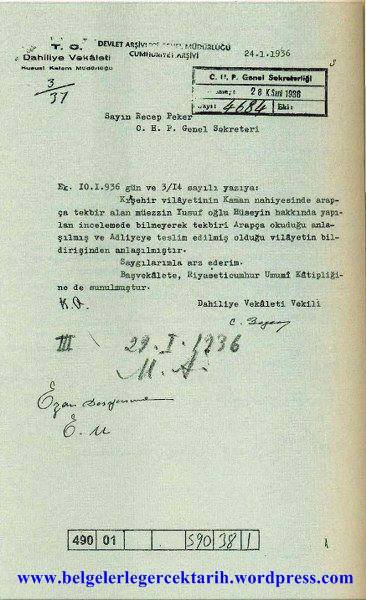 T. C.
DEVLET ARŞİVLERİ GENEL MÜDÜRLÜĞÜ
CUMHURİYET ARŞİVİ
24.1.1936
Dahiliye Vekâleti
Hususî Kalem Müdürlüğü
3/37
C. H. P. Genel Sekreterliği
28 K.Sani 1936
Sayı: 4684 Eki:
Sayın Recep Peker
C. H. P. Genel Sekreteri
Ek. 10.I.936 gün ve 3/I4 sayılı yazıya:
Kırşehir vilâyetinin Kaman nahiyesinde arap-
ça tekbir alan müezzin Yusuf oğlu Hüseyin hakkında yapı-
lan incelemede bilmeyerek tekbiri Arapça okuduğu anla-
şılmış ve Adliyeye teslim edilmiş olduğu vilâyetin bil-
dirişinden anlaşılmıştır.
Saygılarımla arz ederim.
Başvekâlete, Riyaseticumhur Umumî Kâtipliği-
ne de sunulmuştur.
Dahiliye Vekâleti Vekili
III
29.I.1936
M. A.
Ezan
E. U
490 01 590 38 1
www.belgelerlegercektarih.wordpress.com